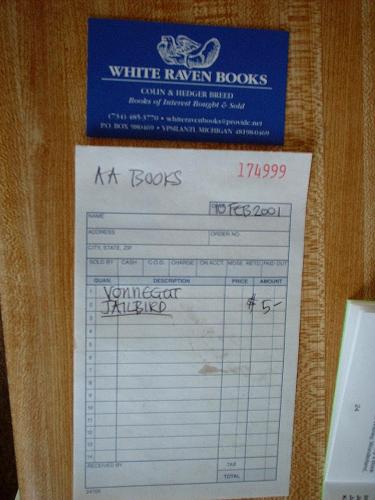 WHITE RAVEN BOOKS
COLIN & HEDGER BREED
Books of Interest Bought & Sold
(734) 485-3770 • whiteravenbooks@provide.net
P.O. BOX 980469 • YPSILANTI, MICHIGAN 48198-0469
AA BOOKS 174999
DATE 10 FEB 2001
NAME
ADDRESS ORDER NO.
CITY, STATE, ZIP
SOLD BY CASH C.O.D. CHARGE ON ACCT. MDSE. RETD. PAID OUT
QUAN. DESCRIPTION PRICE AMOUNT
1 VONNEGUT
2 JAILBIRD $5-
3
4
5
6
7
8
9
10
11
12
13
14
RECEIVED BY TAX
TOTAL
24